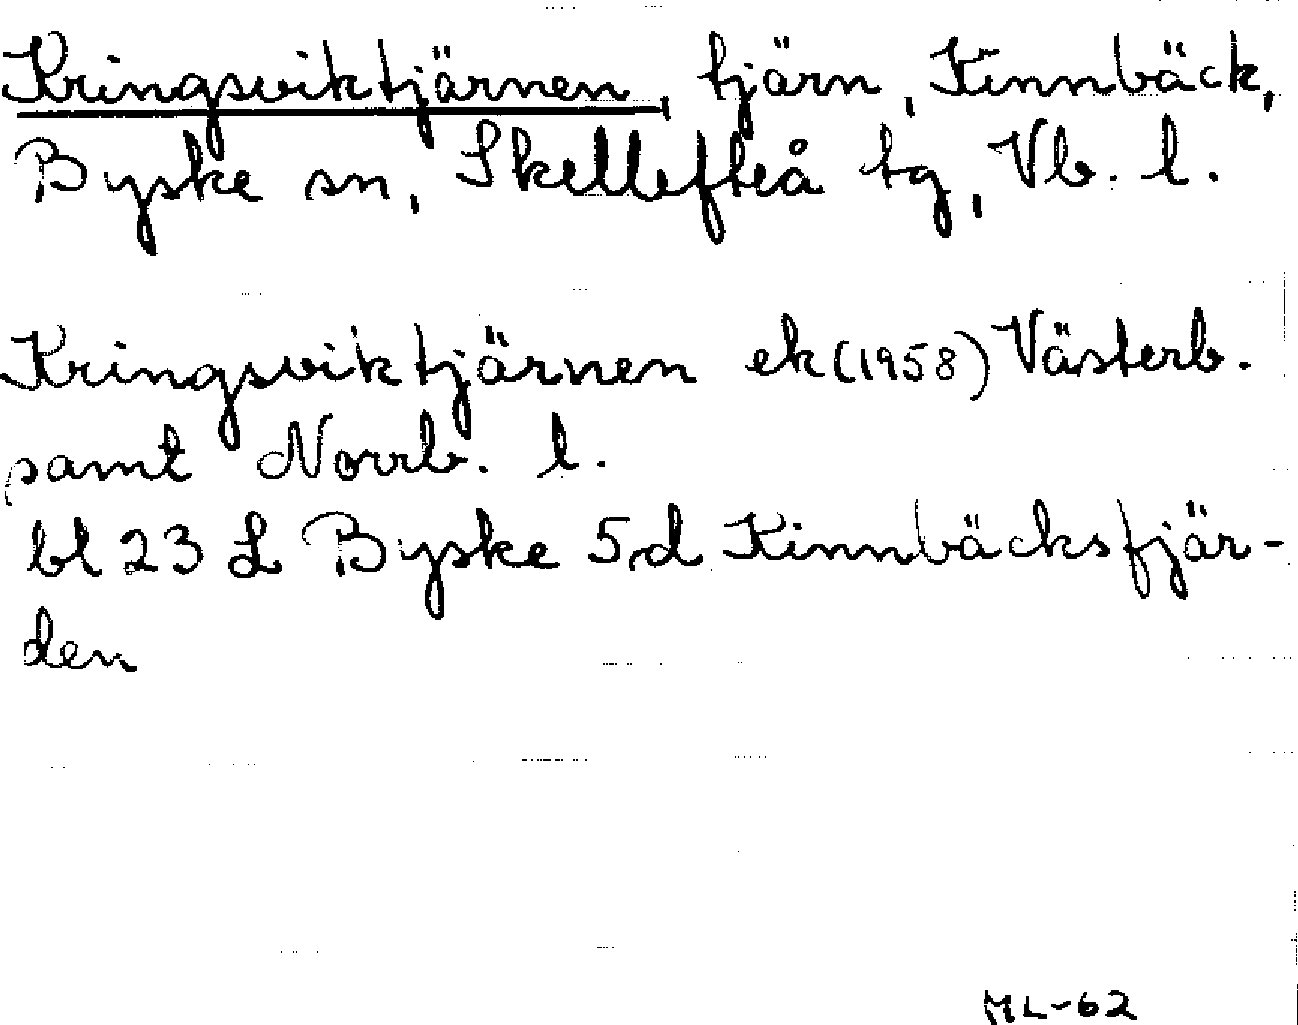 Kringsviktjärnen, tjärn, Kinnbäck,
Byske sn, Skellefteå tg, Vb. l.
Kringsviktjärnen ek (1958) Västerb.
samt Norrb. l.
bl 23 L Byske 5d Kinnbäcksfjär-
den
ML-62